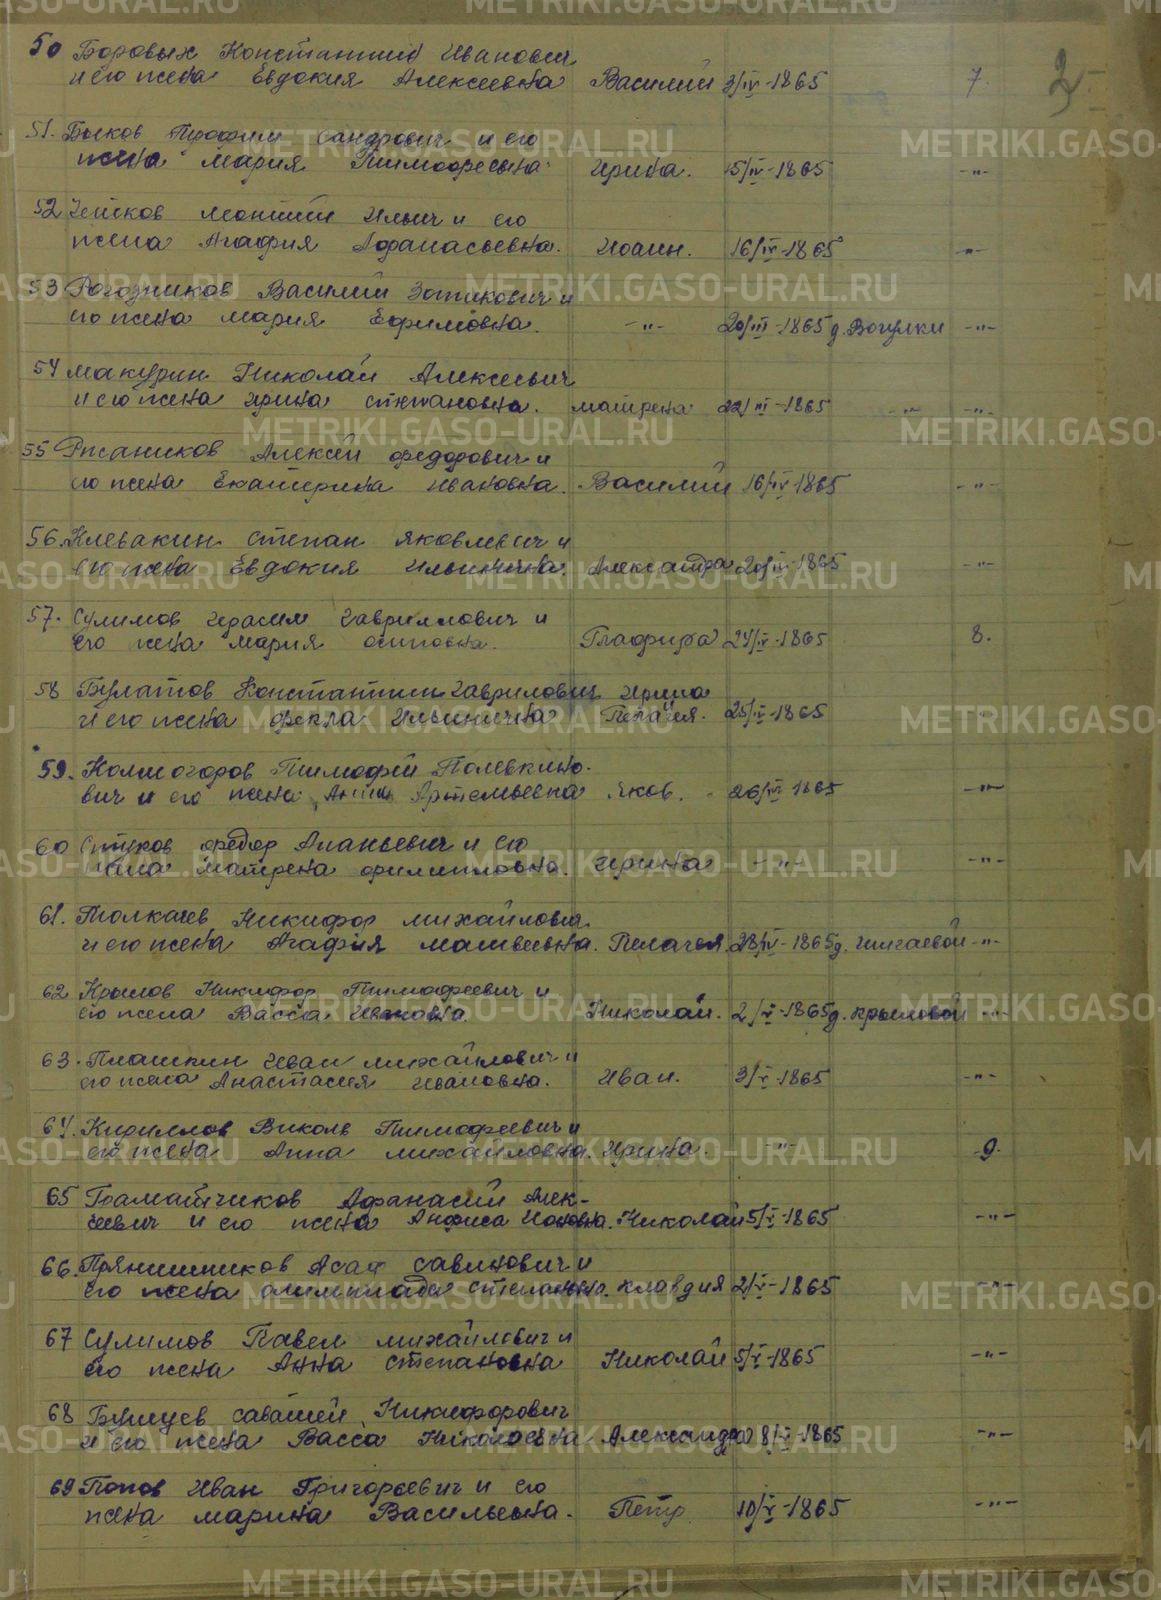 50 Боровых Константин Иванович
и его жена Евдокия Алексеевна Василий 3/IV-1865 7.
2
51. Быков Трофим сандрович и его
жена Мария Тимофеевна. Ирина. 15/IV-1865 -"-
52 Леонтий Ильич и его
жена Агафия Афанасьевна. Иоанн. 16/IV-1865 -"-
53 Рогозников Василий Зотикович и
его жена Мария Ефимовна. -"- 20/III-1865 д. Вогулки -"-
54 Макурин Николай Алексеевич
и его жена Ирина Степановна. Матрена 22/III-1865 -"- -"-
55 Алексей Федорович и
его жена Екатерина Ивановна. Василий 16/IV-1865 -"-
56. Клевакин Степан Яковлевич и
его жена Евдокия Ильинична. Александра 20/IV-1865 -"-
57. Сулимов Герасим Гаврилович и
его жена Мария Осиповна. Глафира 24/IV-1865 8.
58 Булатов Константин Гаврилович Ирина и
и его жена Фекла Ильинична Пелагея. 25/IV-1865 -"-
59. Колмогоров Тимофей
вич и его жена Артемьевна Яков. 26/IV 1865 -"-
60 Стуков Федор Ананьевич и его
жена Матрена Филипповна. Ирина -"- -"-
61. Толкачев Никифор Михайлович
и его жена Агафия Матвеевна. Пелагея. 28/IV-1865 д. Шигаевой -"-
62 Крылов Никифор Тимофеевич и
его жена Васса Ивановна. Николай. 2/V-1865 д. Крыловой -"-
63. Плашкин Иван Михайлович и
его жена Анастасия Ивановна. Иван. 3/V-1865 -"-
64. Кириллов Викол Тимофеевич и
его жена Анна Михайловна. Ирина. -"- 9.
65 Граматчиков Афанасий Алек-
сеевич и его жена Анфиса Николай 5/V-1865 -"-
66. Прянишников Асаф Савинович и
его жена Олимпиада Степановна. Клавдия 2/V-1865 -"-
67 Сулимов Павел Михайлович и
его жена Анна Степановна Николай 5/V-1865 -"-
68 Савватей Никифорович
и его жена Васса Николаевна Александра 8/V-1865 -"-
69 Попов Иван Григорьевич и его
жена Марина Васильевна. Петр 10/V-1865 -"-
METRIKI.GASO-URAL.RU